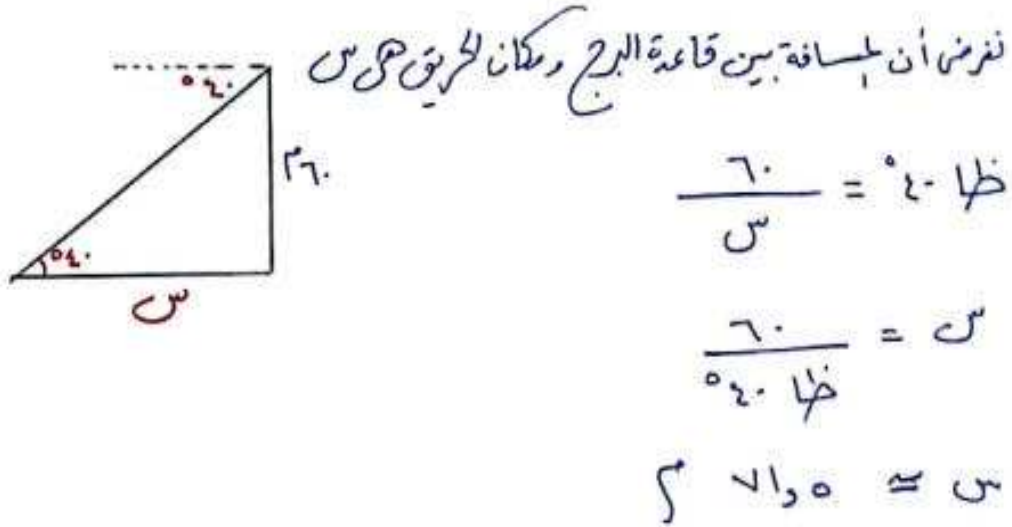 نفرض أن المسافة بين قاعدة البرج ومكان الحريق هى س
٤٠°
٦٠ م
٤٠°
س
ظا ٤٠° = ٦٠ / س
س = ٦٠ / ظا ٤٠°
س ≃ ٧١,٥ م